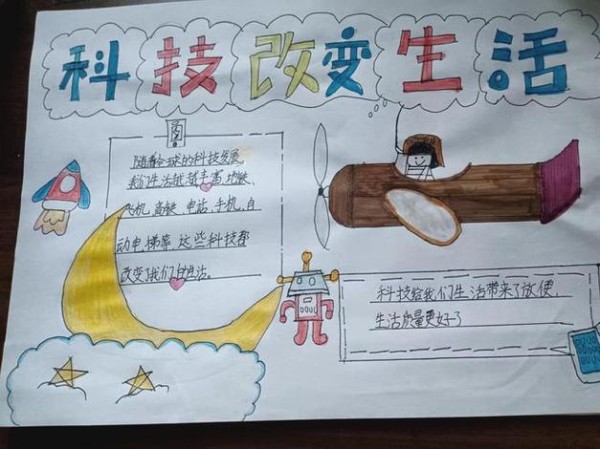 科技改变生活
随着全球的科技发展
我们生活越越丰富,地铁、
飞机,高铁、电话、手机,自
动电梯等这些科技都
改变了我们的生活。
科技给我们生活带来了放便,
生活质量更好了